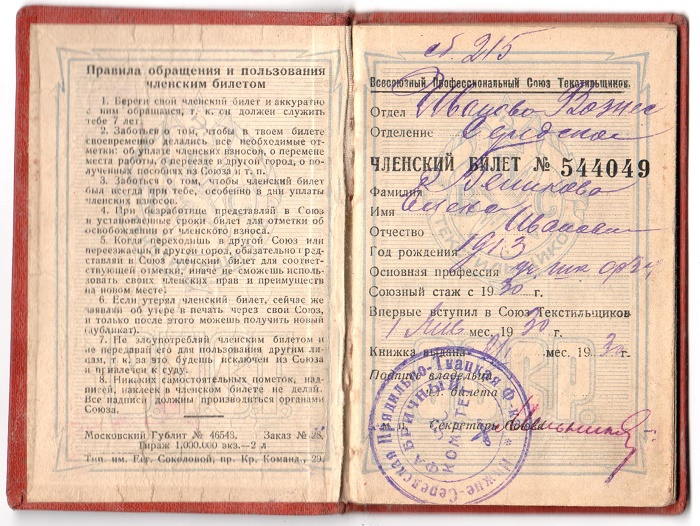 Правила обращения и пользования
членским билетом
1. Береги свой членский билет и аккуратно
с ним обращайся, т. к. он должен служить
тебе 7 лет.
2. Заботься о том, чтобы в твоем билете
своевременно делались все необходимые от-
метки: об уплате членских взносов, о перемене
места работы, о переезде в другой город, о по-
лученных пособиях из Союза и т. п.
3. Заботься о том, чтобы членский билет
был всегда при тебе, особенно в дни уплаты
членских взносов.
4. При безработице представляй в Союз
в установленные сроки билет для отметки об
освобождении от членского взноса.
5. Когда переходишь в другой Союз или
переезжаешь в другой город, обязательно пред-
ставляй в Союз членский билет для соответ-
ствующей отметки, иначе не сможешь использо-
вать своих членских прав и преимуществ
на новом месте.
6. Если утерял членский билет, сейчас же
заявляй об утере в печать через свой Союз,
и только после этого можешь получить новый
(дубликат).
7. Не злоупотребляй членским билетом и
не передавай его для пользования другим ли-
цам, т. к. за это будешь исключен из Союза
и привлечен к суду.
8. Никаких самостоятельных пометок, над-
писей, наклеек в членском билете не делай.
Все надписи должны производиться органами
Союза.
Московский Гублит № 46543. Заказ №
Тираж 1,000.000 экз.—2 л
Тип. им. Евг. Соколовой, пр. Кр. Команд., 29.
об. 215
Всесоюзный Профессиональный Союз Текстильщиков.
Отдел Иваново Вознес
Отделение Середское
ЧЛЕНСКИЙ БИЛЕТ № 544049
Фамилия
Имя Елена
Отчество Ивановн
Год рождения 1913
Основная профессия
Союзный стаж с 1930 г.
Впервые вступил в Союз Текстильщиков
1 мес. 1930 г.
Книжка выдана мес. 1930 г.
Подпись владельца
чл. билета
м. п. Секретарь Союза
Прядильно-Ткацкая Ф-ка
Нижне-Середская
ФАБРИЧНЫЙ
КОМИТЕТ